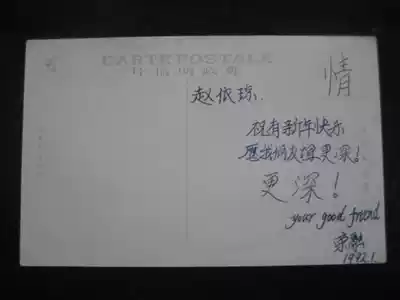 CARTE POSTALE
情
赵依琼.
祝有新年快乐
愿我们友谊更深!
更深!
your good friend
1992.1.